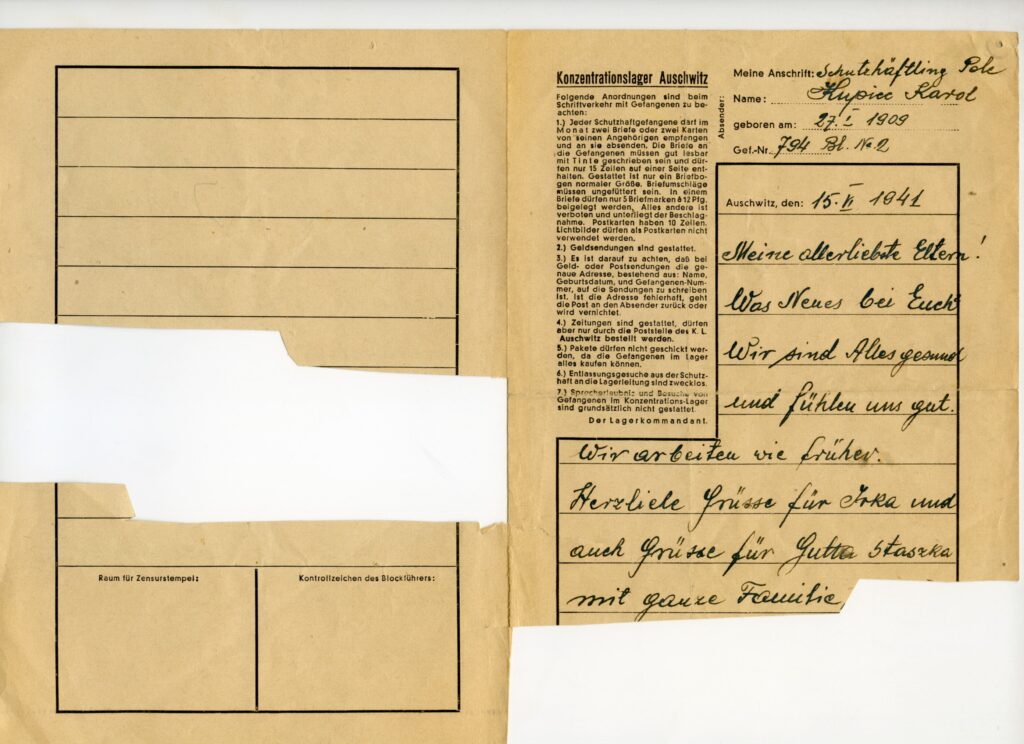 Raum für Zensurstempel:
Kontrollzeichen des Blockführers:
Konzentrationslager Auschwitz
Folgende Anordnungen sind beim
Schriftverkehr mit Gefangenen zu be-
achten:
1.) Jeder Schutzhaftgefangene darf im
Monat zwei Briefe oder zwei Karten
von seinen Angehörigen empfangen
und an sie absenden. Die Briefe an
die Gefangenen müssen gut lesbar
mit Tinte geschrieben sein und dür-
fen nur 15 Zeilen auf einer Seite ent-
halten. Gestattet ist nur ein Briefbo-
gen normaler Größe. Briefumschläge
müssen ungefüttert sein. In einem
Briefe dürfen nur 5 Briefmarken à 12 Pfg.
beigelegt werden. Alles andere ist
verboten und unterliegt der Beschlag-
nahme. Postkarten haben 10 Zeilen.
Lichtbilder dürfen als Postkarten nicht
verwendet werden.
2.) Geldsendungen sind gestattet.
3.) Es ist darauf zu achten, daß bei
Geld- oder Postsendungen die ge-
naue Adresse, bestehend aus: Name,
Geburtsdatum, und Gefangenen-Num-
mer, auf die Sendungen zu schreiben
ist. Ist die Adresse fehlerhaft, geht
die Post an den Absender zurück oder
wird vernichtet.
4.) Zeitungen sind gestattet, dürfen
aber nur durch die Poststelle des K. L.
Auschwitz bestellt werden.
5.) Pakete dürfen nicht geschickt wer-
den, da die Gefangenen im Lager
alles kaufen können.
6.) Entlassungsgesuche aus der Schutz-
haft an die Lagerleitung sind zwecklos.
7.) Sprecherlaubnis und Besuche von
Gefangenen im Konzentrations-Lager
sind grundsätzlich nicht gestattet.
Der Lagerkommandant.
Absender:
Meine Anschrift: Schutzhäftling Pole
Name: Kupiec Karol
geboren am: 27. I 1909
Gef.-Nr. 794 Bl. No 2
Auschwitz, den: 15. VI 1941
Meine allerliebste Eltern!
Was Neues bei Euch
Wir sind Alles gesund
und fühlen uns gut.
Wir arbeiten wie früher.
Herzliele Grüsse für Irka und
auch Grüsse für Gutta Staszka
mit ganze Familie